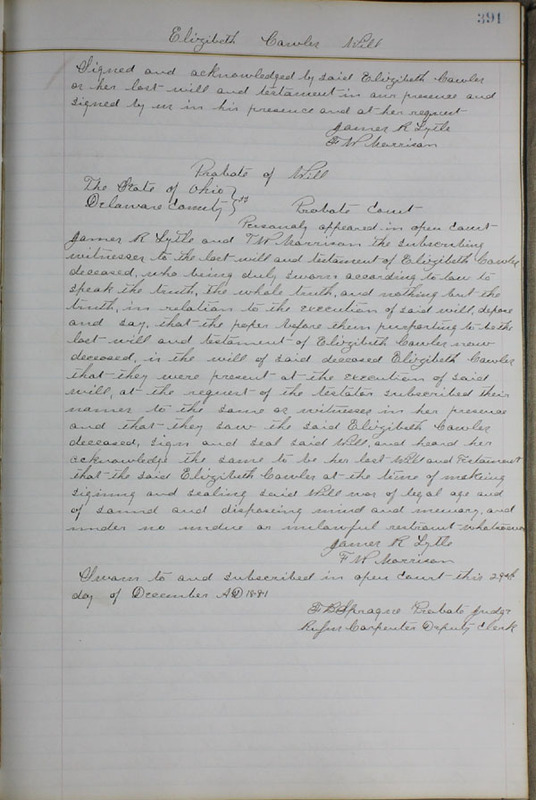 391
Elizibeth Cawler Will
Signed and acknowledged by said Elizibeth Cawler
as her last will and testament in our presence and
signed by us in his presence and at her request
James R Lytle
F W Marrison
Probate of Will
The State of Ohio }
Delaware County } ss Probate Court
Personaly appeared in open Court
James R Lytle and F W Marrison the subscribing
witnesses to the last will and testament of Elizibeth Cawler
deceased, who being duly sworn according to law to
speak the truth, the whole truth, and nothing but the
truth, in relation to the execution of said will, depose
and say, that the paper before them purporting to be the
last will and testament of Elizibeth Cawler now
deceased, is the will of said deceased Elizibeth Cawler
that they were present at the execution of said
will, at the request of the testator subscribed their
names to the same as witnesses in her presence
and that they saw the said Elizibeth Cawler
deceased, sign and seal said Will, and heard her
acknowledge the same to be her last Will and Testament
that the said Elizibeth Cawler at the time of making
signing and sealing said Will was of legal age and
of sound and disposing mind and memory, and
under no undue or unlawful restraint whatsoever
James R Lytle
F W Marrison
Swarn to and subscribed in open Court this 29th
day of December AD 1881
F B Sprague Probate Judge
Rufus Carpenter Deputy Clerk